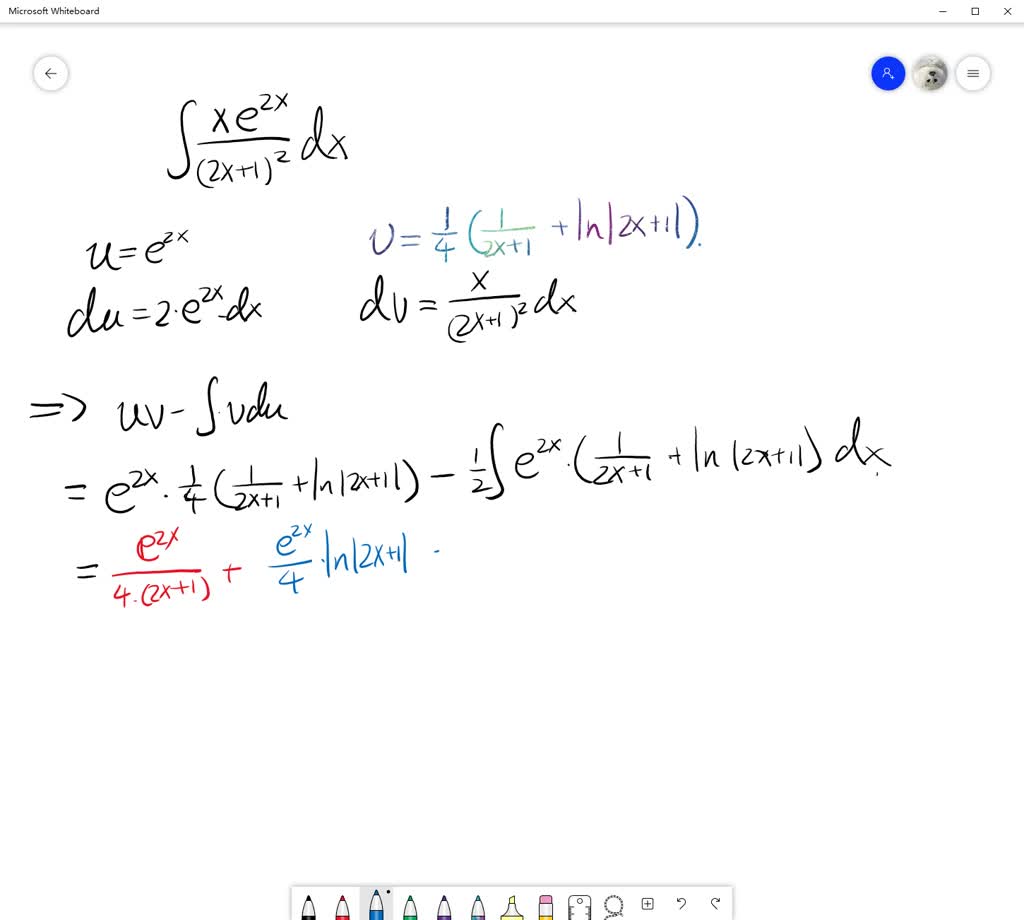 Microsoft Whiteboard
∫ xe^{2x}/(2x+1)^2 dx
u = e^{2x}
v = 1/4 (1/(2x+1) + ln|2x+1|).
du = 2·e^{2x}·dx
dv = x/(2x+1)^2 dx
=> uv - ∫vdu
= e^{2x} · 1/4 (1/(2x+1) + ln|2x+1|) - 1/2 ∫ e^{2x}·(1/(2x+1) + ln|2x+1|) dx
= e^{2x}/(4·(2x+1)) + e^{2x}/4 ·ln|2x+1| -